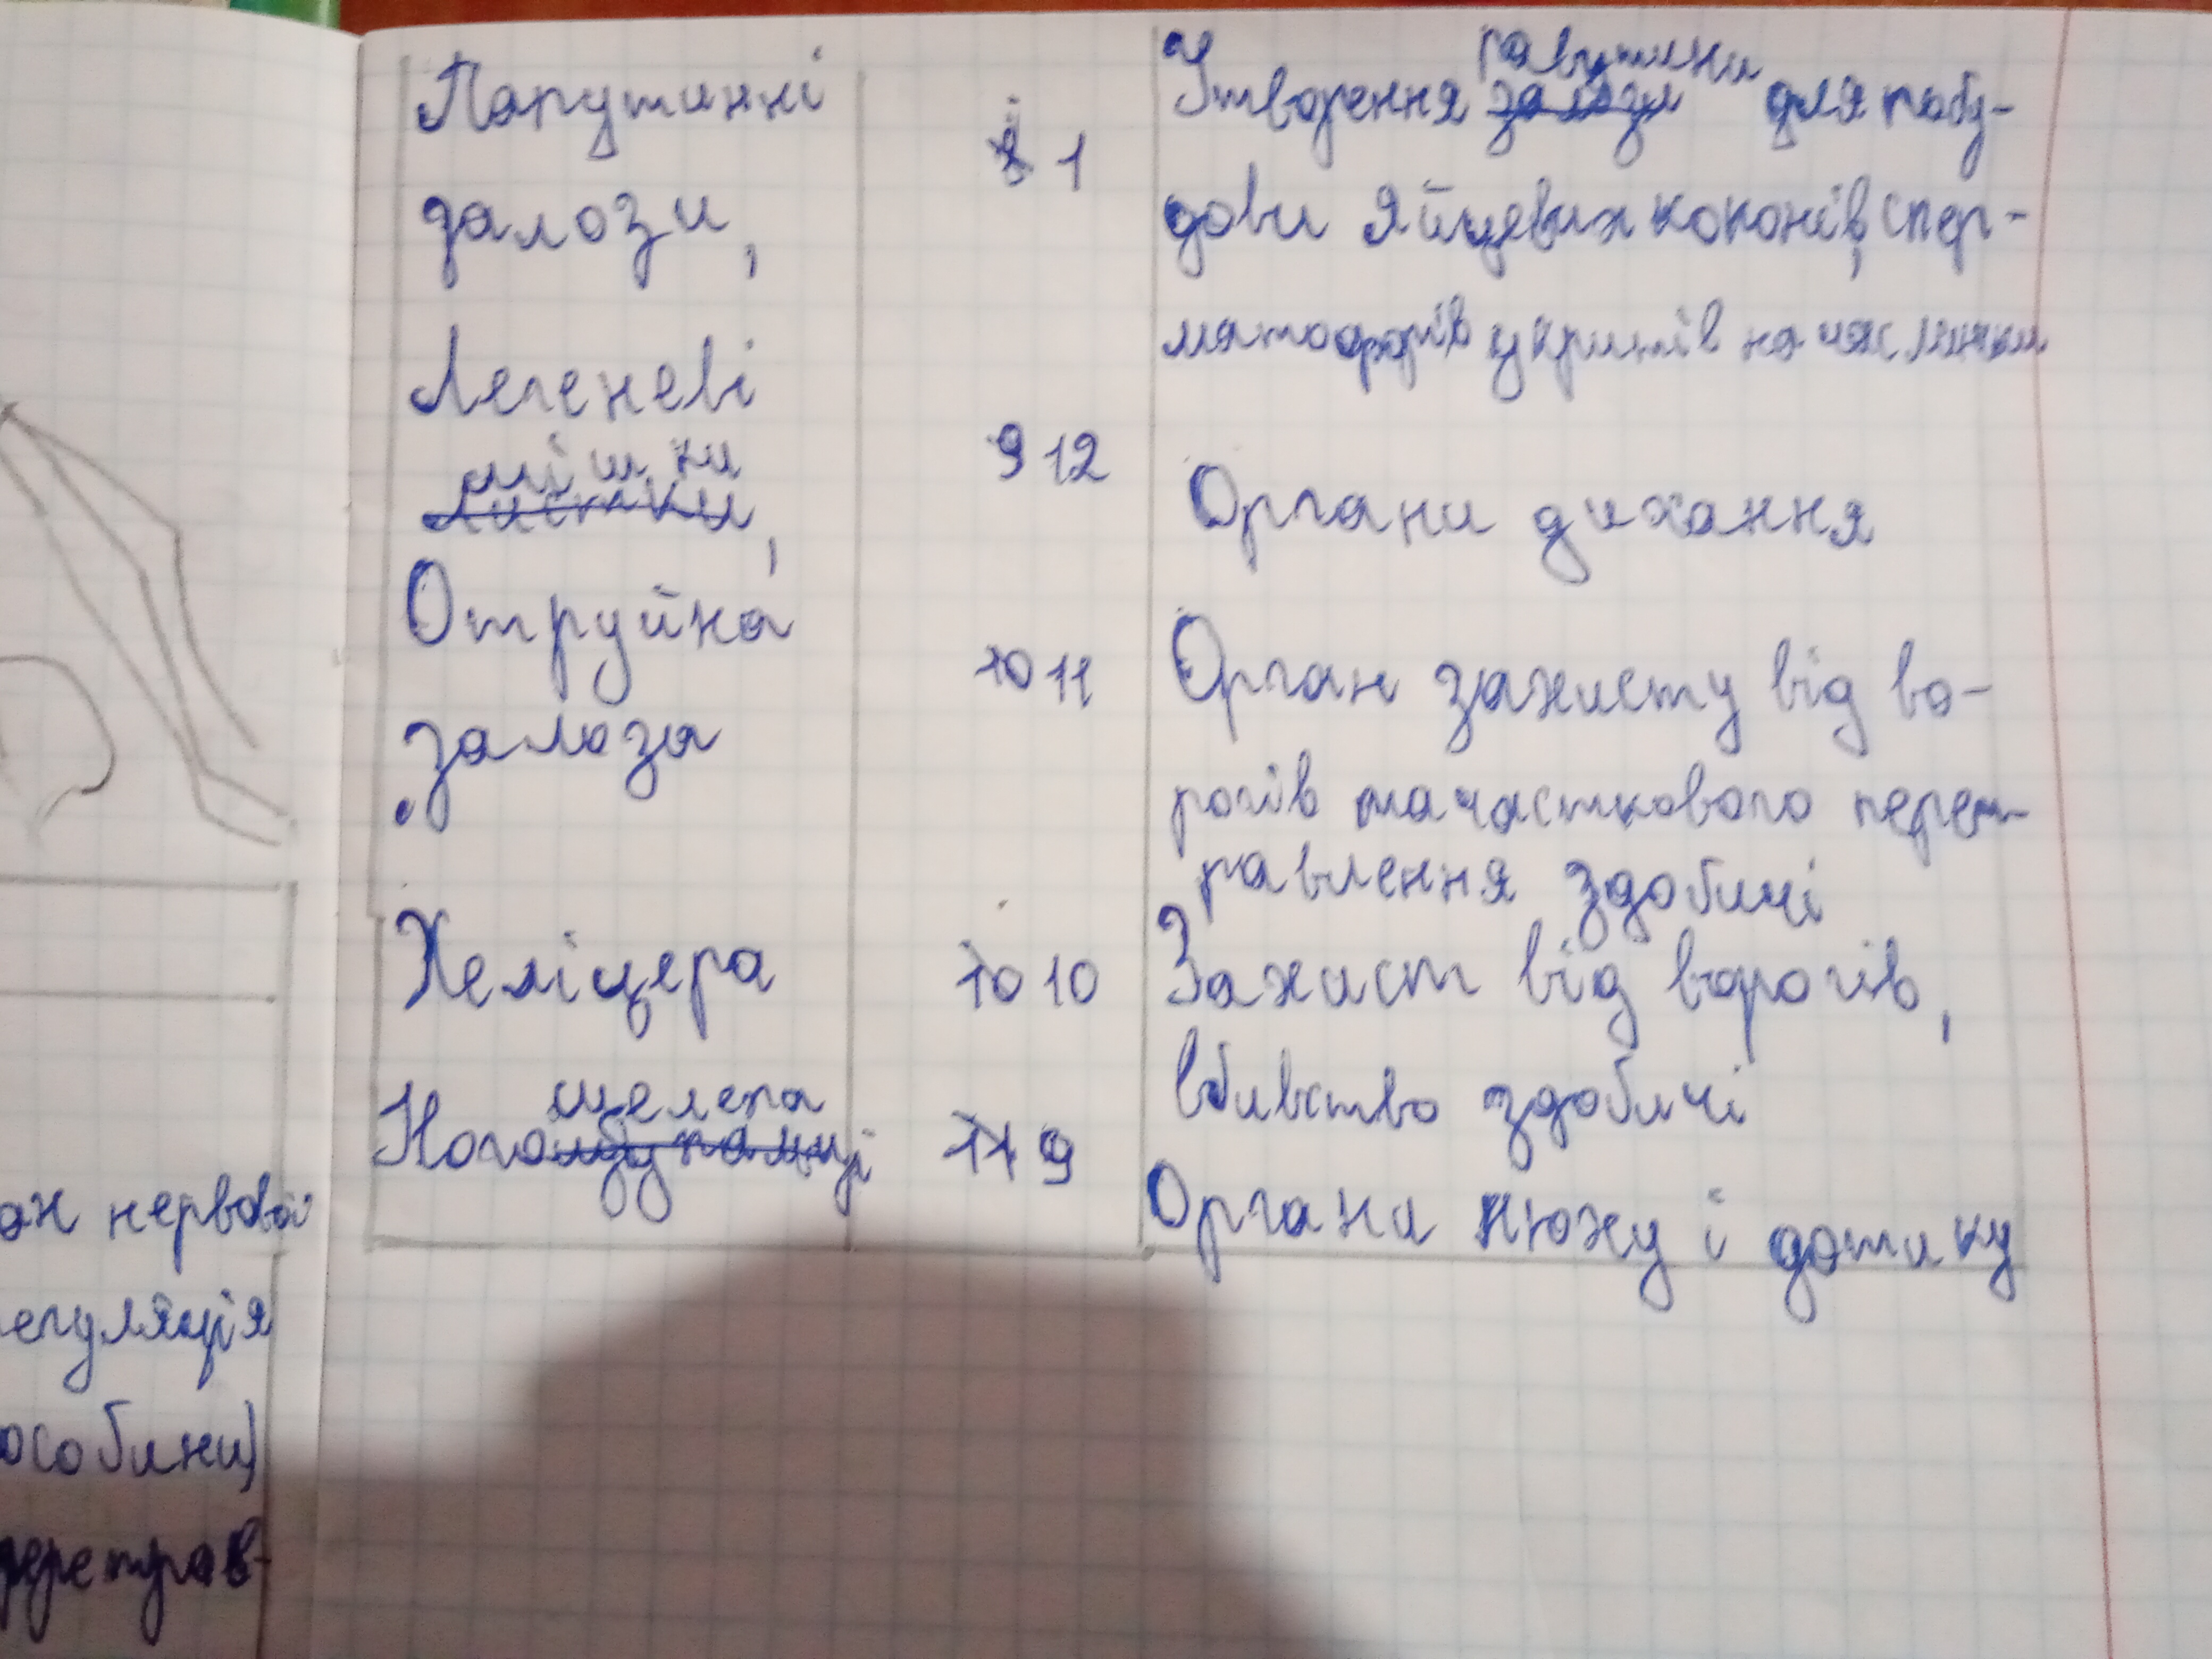 Папутинні
залози,
8 1
Утворення залози павутини для побу-
дови яйцевих коконів, спер-
матофорів укриттів на час линьки
Легеневі
листки мішки,
9 12
Органи дихання
Отруйна
залоза
10 11
Орган захисту від во-
рогів та часткового перет-
равлення здобичі
Хеліцера
10 10
Захист від ворогів,
вбивство здобичі
Ногощупальці щелепа
11 9
Органи нюху і дотику
ан нервової
егуляція
особини)
перетрав-